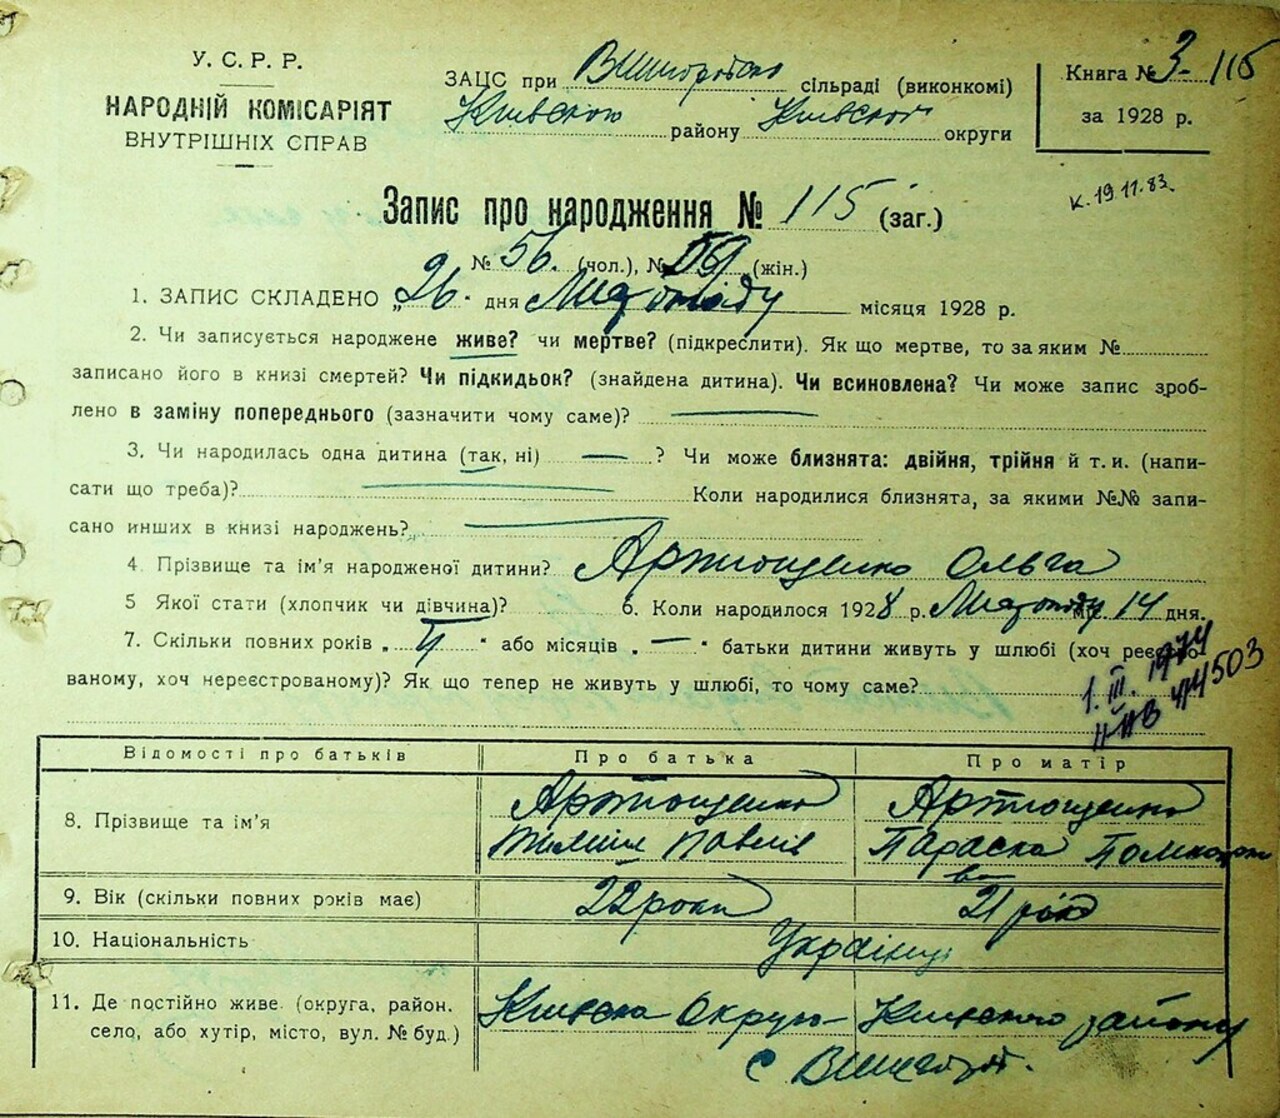 У. С. Р. Р.
НАРОДНІЙ КОМІСАРІЯТ
ВНУТРІШНІХ СПРАВ
ЗАЦС при Вишгородско сільраді (виконкомі)
Київского району Київской округи
Книга № 3 - 115
за 1928 р.
К. 19.11.83.
Запис про народження № 115 (заг.)
№ 56. (чол.), № 59 (жін.)
1. ЗАПИС СКЛАДЕНО „26“ дня Листопаду місяця 1928 р.
2. Чи записується народжене живе? чи мертве? (підкреслити). Як що мертве, то за яким №
записано його в книзі смертей? Чи підкидьок? (знайдена дитина). Чи всиновлена? Чи може запис зроб-
лено в заміну попереднього (зазначити чому саме)? —
3. Чи народилась одна дитина (так, ні) — ? Чи може близнята: двійня, трійня й т. и. (напи-
сати що треба)? — Коли народилися близнята, за якими №№ запи-
сано инших в книзі народжень? —
4. Прізвище та ім’я народженої дитини? Артющенко Ольга
5 Якої стати (хлопчик чи дівчина)? 6. Коли народилося 1928 р. Листопаду м. 14 дня.
7. Скільки повних років „ 4 “ або місяців „ — “ батьки дитини живуть у шлюбі (хоч реєстро-
ваному, хоч нереєстрованому)? Як що тепер не живуть у шлюбі, то чому саме?
1. III. 1974
414503
Відомості про батьків Про батька Про матір
8. Прізвище та ім’я Артющенко Артющенко
Павлів Параска
9. Вік (скільки повних років має) 22 роки 21 рік
10. Національність Українці
11. Де постійно живе (округа, район, Київска Округа Київского району
село, або хутір, місто, вул. № буд.) с Вишгород.